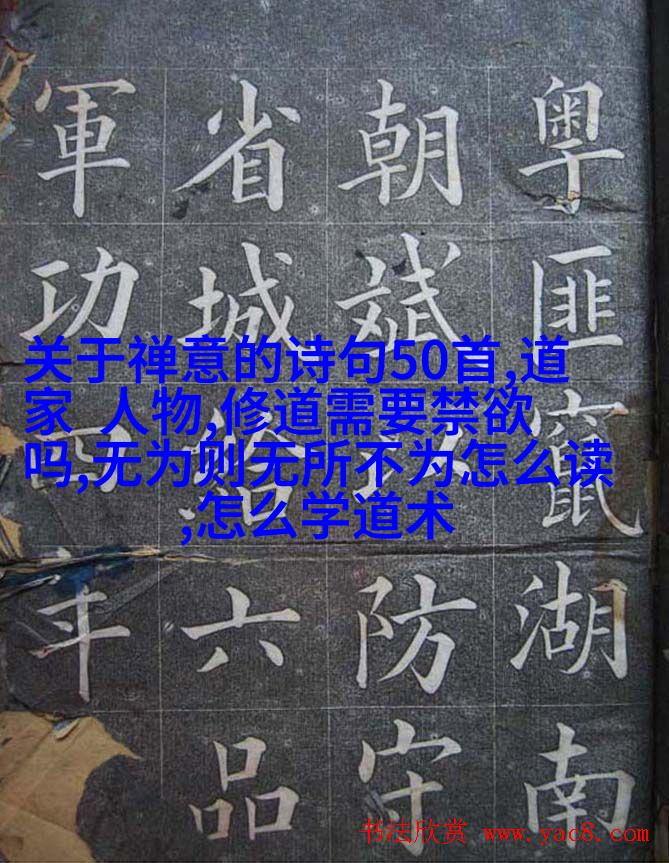 粤匪竄湖南
朝斌以防守
省城六品
軍功
关于禅意的诗句50首,道
家 人物,修道需要禁欲
吗,无为则无所不为怎么读
,怎么学道术
书法欣赏 www.yac8.com